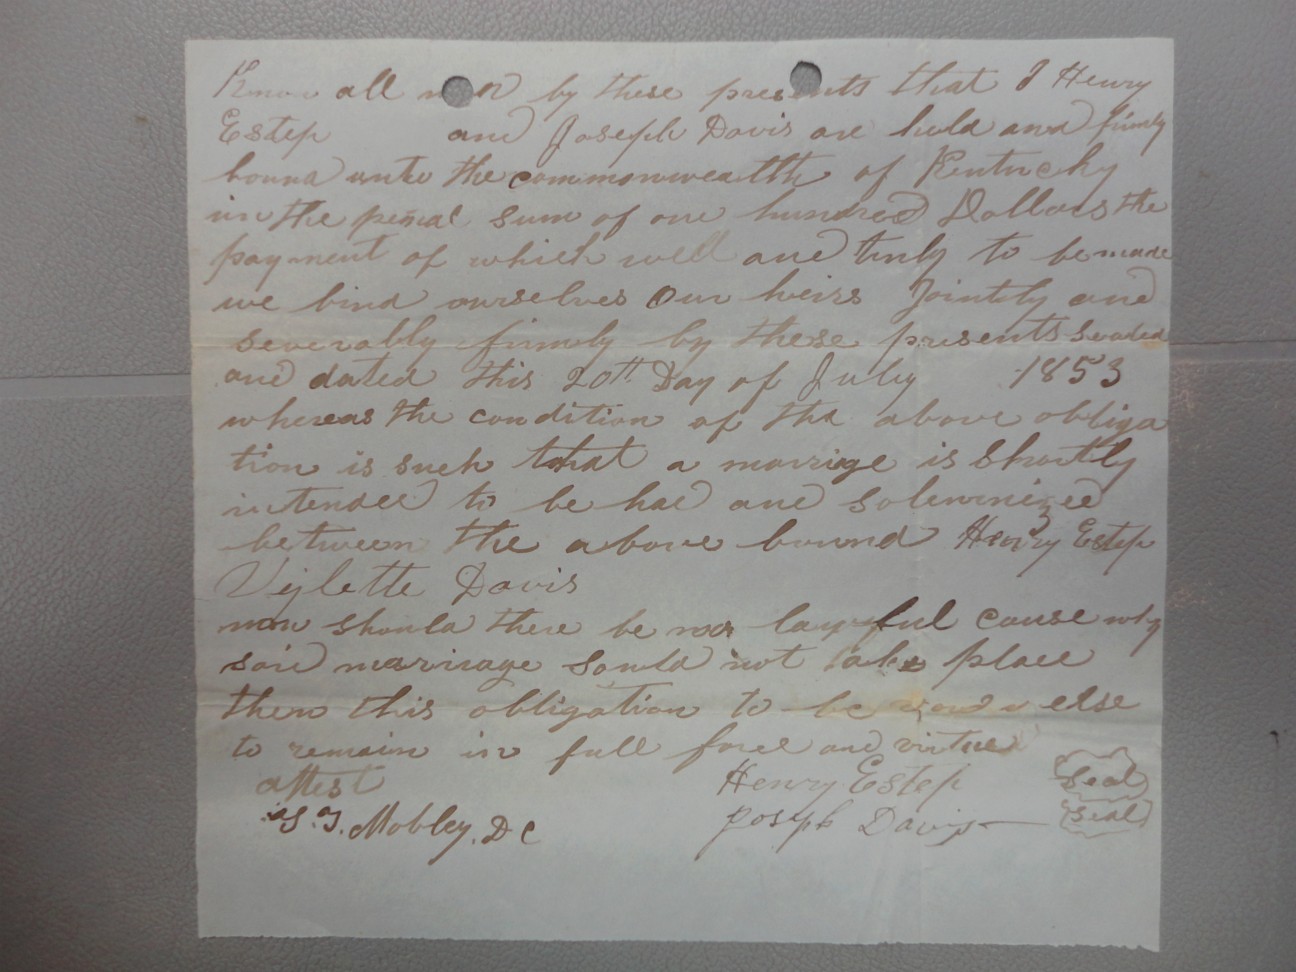 Know all men by these presents that I Henry
Estep and Joseph Davis are held and firmly
bound unto the commonwealth of Kentucky
in the penal sum of one hundred Dollars the
payment of which well and truly to be made
we bind ourselves our heirs Jointly and
severably firmly by these presents sealed
and dated this 20th Day of July 1853
whereas the condition of the above obliga
tion is such that a marrige is Shortly
intended to be had and solemnized
between the above bound Henry Estep
Vijlette Davis
now should there be no lawful cause why
said marriage sould not take place
then this obligation to be void or else
to remain in full force and virtue
attest Henry Estep Seal
S. T. Mobley, D C Joseph Davis Seal